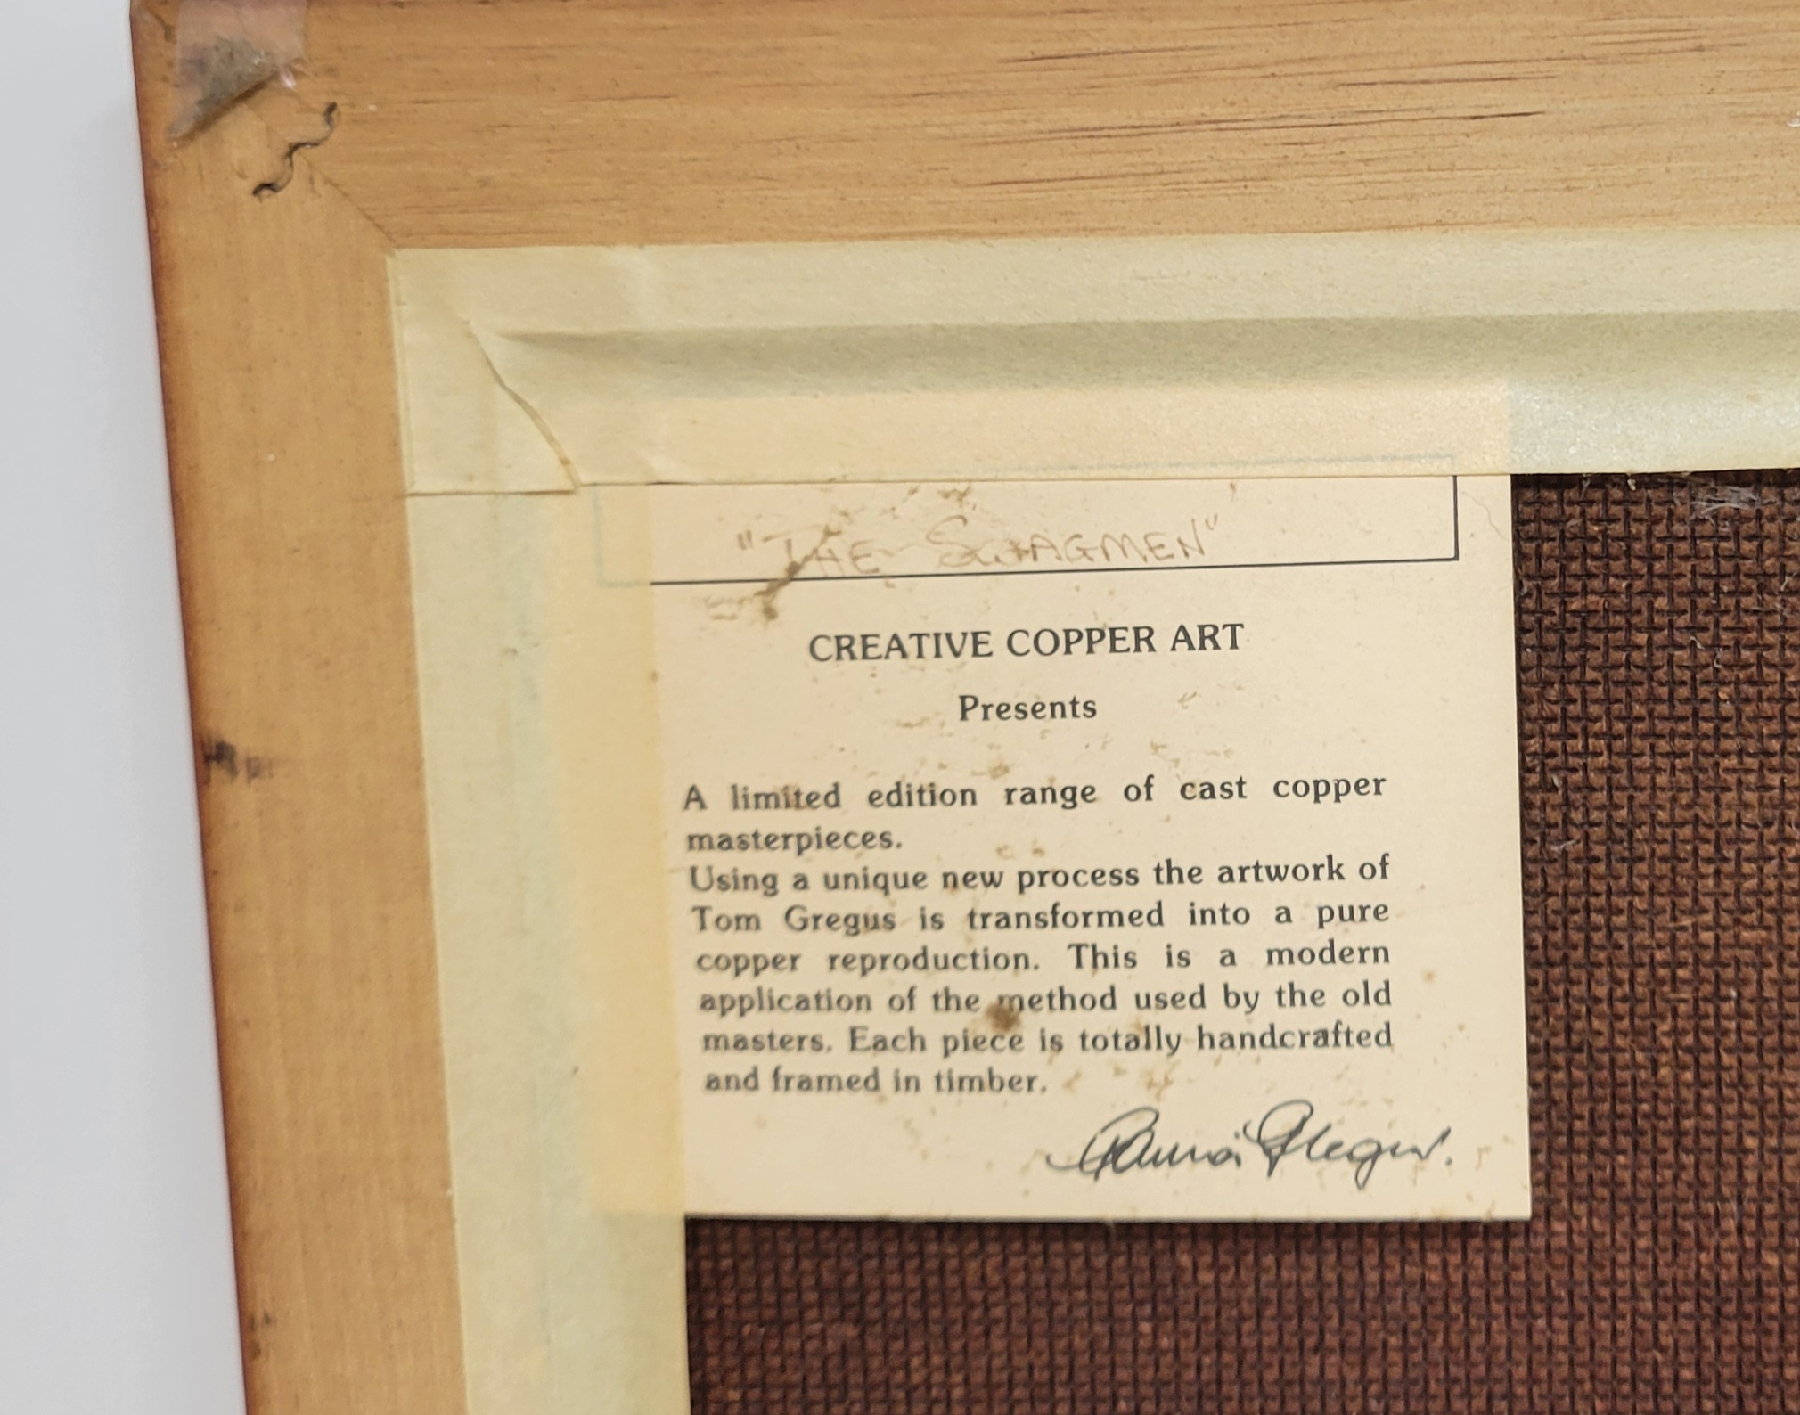 "THE SWAGMEN"
CREATIVE COPPER ART
Presents
A limited edition range of cast copper
masterpieces.
Using a unique new process the artwork of
Tom Gregus is transformed into a pure
copper reproduction. This is a modern
application of the method used by the old
masters. Each piece is totally handcrafted
and framed in timber.
Gregus.